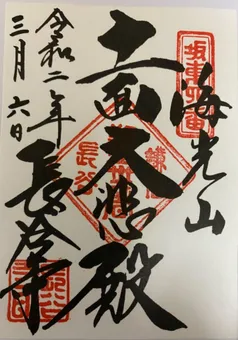 海光山
十一面大悲殿
長谷寺
令和二年
三月六日
坂東四番